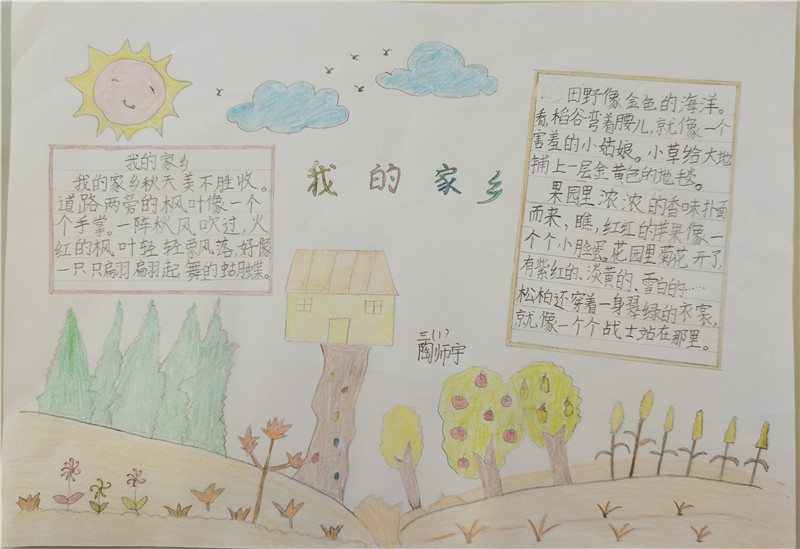 我的家乡
我的家乡
我的家乡秋天美不胜收。
道路两旁的枫叶像一个
个手掌。一阵秋风吹过，火
红的枫叶轻轻飘风落，好像
一只只翩翩起舞的蝴蝶。
田野像金色的海洋。
看，稻谷弯着腰儿，就像一个
害羞的小姑娘。小草给大地
铺上一层金黄色的地毯。
果园里浓浓的香味扑面
而来，瞧，红红的苹果像一
个个小脸蛋。花园里菊花开了，
有紫红的、淡黄的、雪白的……
松柏还穿着一身翠绿的衣裳，
就像一个个战士站在那里。
三(1)
陶师宇